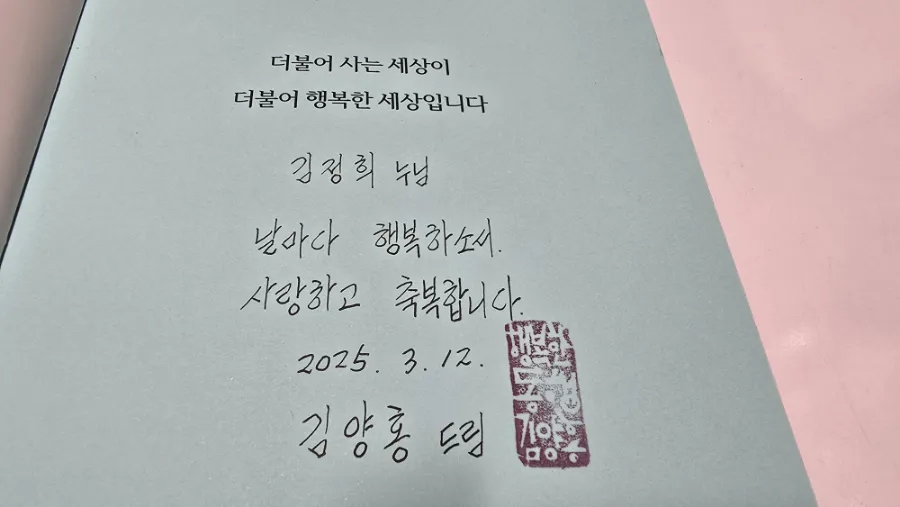 더불어 사는 세상이
더불어 행복한 세상입니다
김정희 누님
날마다 행복하소서.
사랑하고 축복합니다.
2025. 3. 12.
김양홍 드림
김양홍